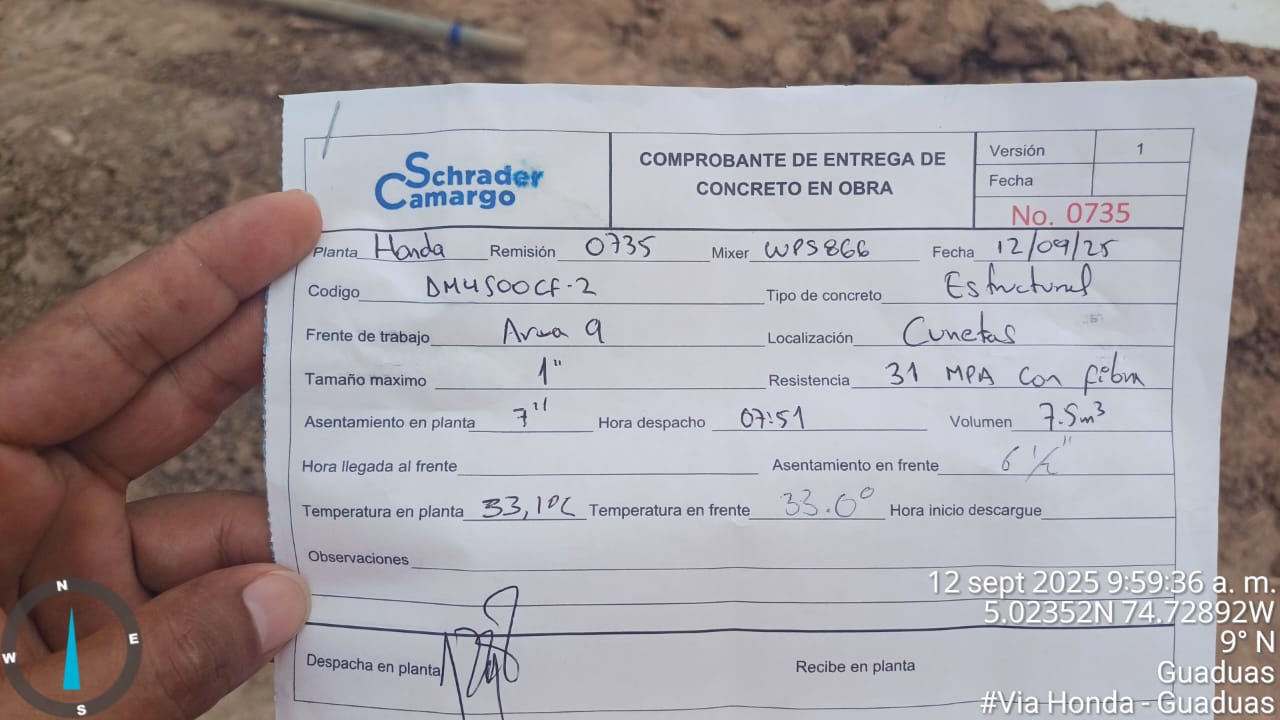 Schrader
Camargo
COMPROBANTE DE ENTREGA DE
CONCRETO EN OBRA
Versión 1
Fecha
No. 0735
Planta Honda Remisión 0735 Mixer WPS866 Fecha 12/09/25
Codigo DM4500CF-2 Tipo de concreto Estructural
Frente de trabajo Area 9 Localización Cunetas
Tamaño maximo 1" Resistencia 31 MPA con fibra
Asentamiento en planta 7" Hora despacho 07:51 Volumen 7.5m³
Hora llegada al frente Asentamiento en frente 6 1/2"
Temperatura en planta 33,1°C Temperatura en frente 33.0° Hora inicio descargue
Observaciones
Despacha en planta Recibe en planta
N
E
S
W
12 sept 2025 9:59:36 a. m.
5.02352N 74.72892W
9° N
Guaduas
#Via Honda - Guaduas